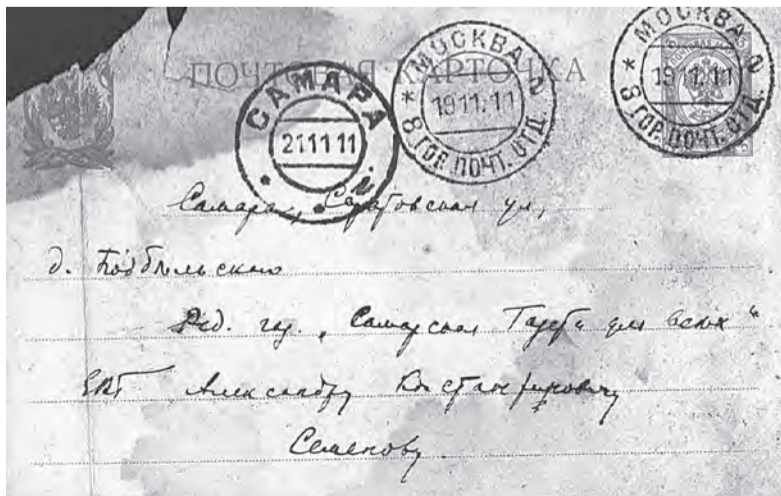 ПОЧТОВАЯ КАРТОЧКА
МОСКВА 2
19 11. 11
* 8 ГОР. ПОЧТ. ОТД. *
МОСКВА 2
19 11. 11
* 8 ГОР. ПОЧТ. ОТД.
САМАРА
21 11 11
Самара, Саратовская ул,
д. Подбельского
Ред. газ. „Самарская Газета для всех“
Александру Константиновичу
Семенову